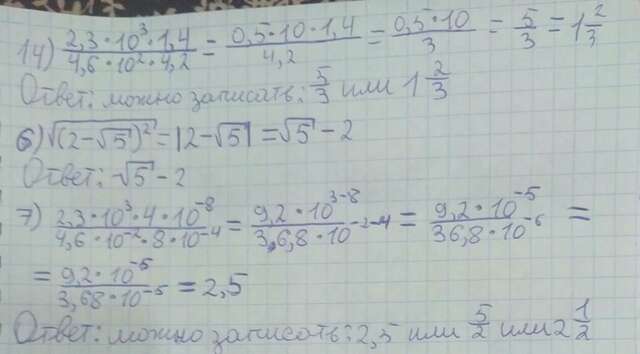 14) (2,3·10³·1,4)/(4,6·10²·4,2) = (0,5·10·1,4)/(4,2) = (0,5·10)/3 = 5/3 = 1 2/3
Ответ: можно записать: 5/3 или 1 2/3
6) √((2-√5)²) = |2-√5| = √5 - 2
Ответ: √5 - 2
7) (2,3·10³·4·10⁻⁸)/(4,6·10⁻²·8·10⁻⁴) = (9,2·10³⁻⁸)/(36,8·10⁻²⁻⁴) = (9,2·10⁻⁵)/(36,8·10⁻⁶) =
= (9,2·10⁻⁵)/(3,68·10⁻⁵) = 2,5
Ответ: можно записать: 2,5 или 5/2 или 2 1/2